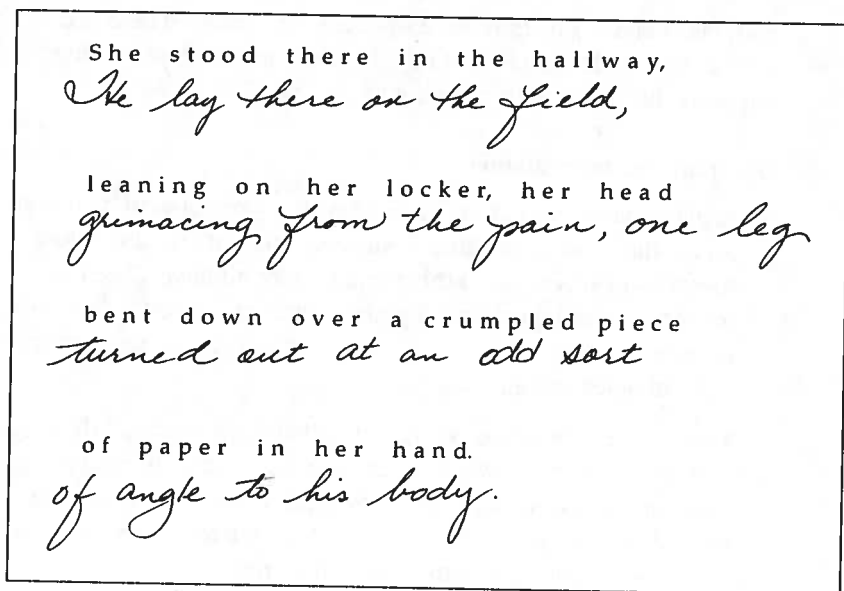 She stood there in the hallway,
He lay there on the field,
leaning on her locker, her head
grimacing from the pain, one leg
bent down over a crumpled piece
turned out at an odd sort
of paper in her hand.
of angle to his body.